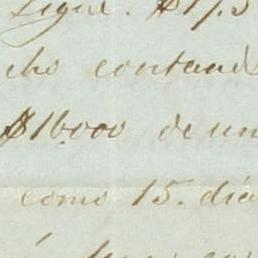 Sigue. $17.5
cho contand
$16.000 de un
como 15. dia